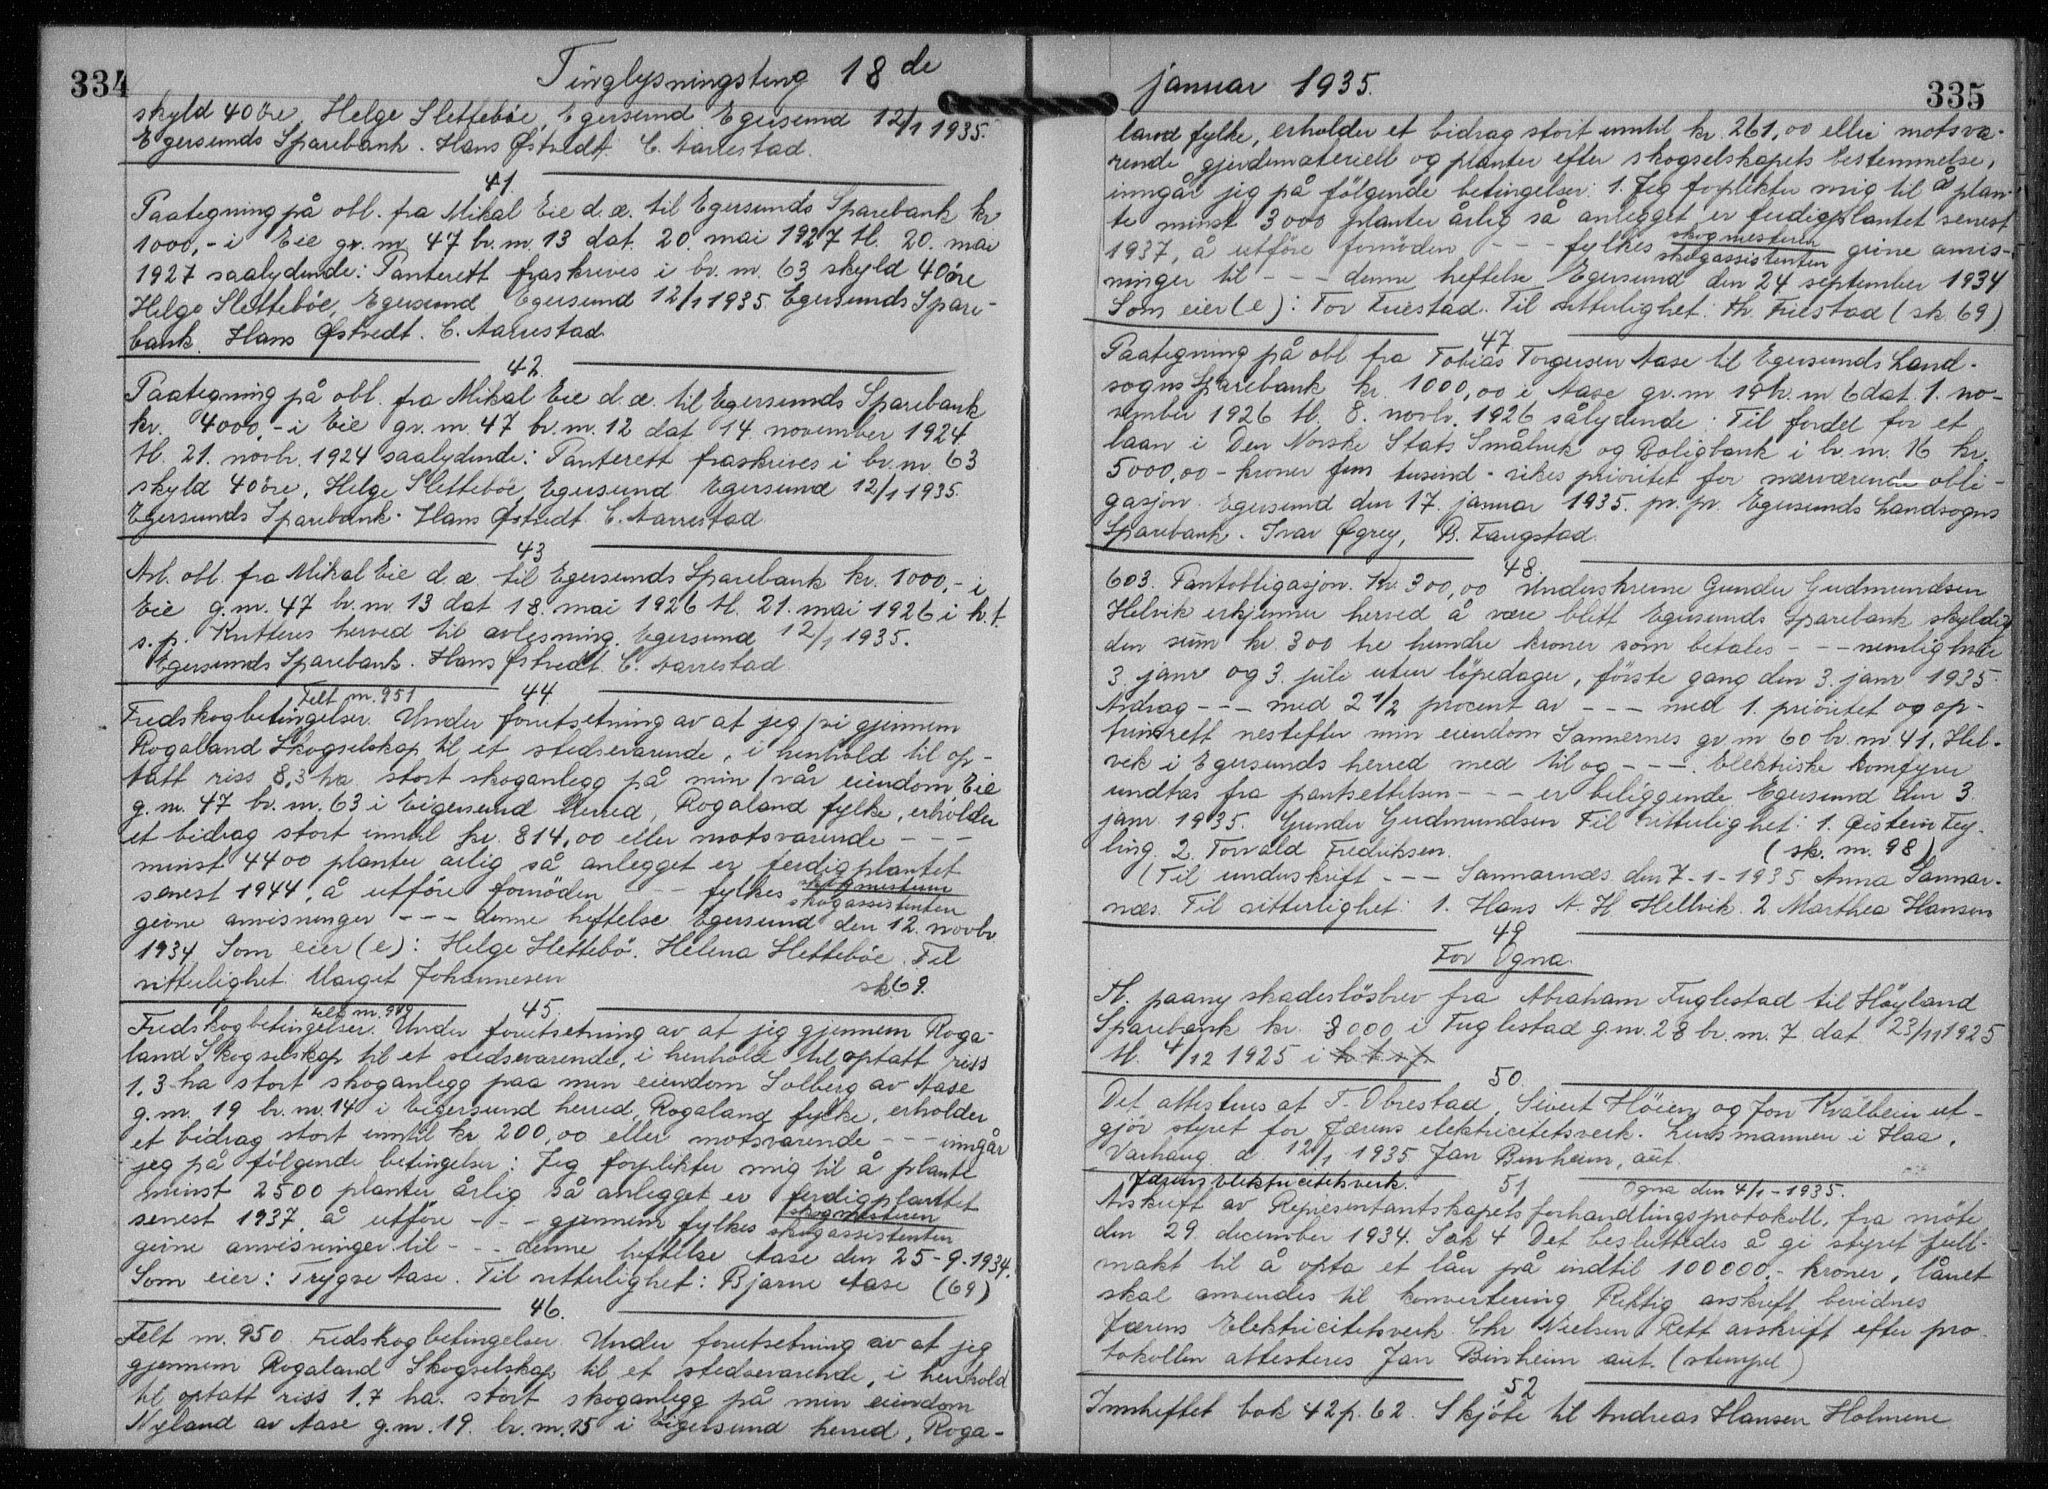 334
Tinglysningsting 18de
skyld 40 öre, Helge Slettebøe, Egersund Egersund 12/1 1935.
Egersunds Sparebank. Hans Østvedt. C. Aarrestad.
41
Paategning på obl. fra Mikal Eie d. æ. til Egersunds Sparebank kr
1000,- i Eie gr. m. 47 br. m. 13 dat. 20. mai 1927 tl. 20. mai
1927 saalydende: Panterett fraskrives i br. m. 63 skyld 40 öre
Helge Slettebøe, Egersund Egersund 12/1 1935. Egersunds Spare-
bank. Hans Østvedt. C. Aarrestad
42.
Paategning på obl. fra Mikal Eie d. æ. til Egersunds Sparebank
kr. 4000,- i Eie gr. m. 47 br. m. 12 dat 14. november 1924
tl. 21. novbr. 1924 saalydende: Panterett fraskrives i br. m. 63
skyld 40 öre, Helge Slettebøe, Egersund Egersund 12/1 1935.
Egersunds Sparebank. Hans Østvedt. C. Aarrestad
43
Avl. obl. fra Mikal Eie d. æ. til Egersunds Sparebank kr. 1000,- i
Eie g. m. 47 br. m. 13 dat 18. mai 1926 tl. 21. mai 1926 i h. t.
s. p. Kvitteres herved til avlysning. Egersund 12/1 1935.
Egersunds Sparebank. Hans Østvedt. C. Aarrestad
Felt m. 951 44.
Fredskogbetingelser. Under forutsetning av at jeg/vi gjennem
Rogaland Skogselskap til et stedsevarende, i henhold til op-
tatt riss 8,3 ha stort skoganlegg på min/vår eiendom Eie
g. m. 47 br. m. 63 i Eigersund Herred, Rogaland fylke, erholder
et bidrag stort inntil kr. 814,00 eller motsvarende - - -
minst 4400 planter årlig så anlegget er ferdigplantet
senest 1944, å utföre fornöden - - fylkes skogmesteren
skogassistenten
givne anvisninger - - - denne heftelse Egersund den 12. novbr
1934. Som eier (e): Helge Slettebö. Helena Slettebøe. Til
vitterlighet Marget Johannesen sk 69.
felt m. 949 45.
Fredskogbetingelser. Under forutsetning av at jeg gjennem Roga-
land Skogselskap til et stedsevarende, i henhold til optatt riss
1.3 ha stort skoganlegg paa min eiendom Solberg av Aase
g. m. 19 br. m. 14 i Eigersund herred, Rogaland fylke, erholder
et bidrag stort inntil kr 200,00 eller motsvarende - - - inngår
jeg på fölgende betingelser: Jeg forplikter mig til å plante
minst 2500 planter årlig så anlegget er ferdigplantet
senest 1937, å utföre - - - gjennem fylkes skogmesteren
skogassistenten
givne anvisninger til - - - denne heftelse Aase den 25-9-1934.
Som eier: Trygve Aase. Til vitterlighet: Bjarne Aase (69)
46.
Felt m. 950. Fredskogbetingelser. Under forutsetning av at jeg
gjennem Rogaland Skogselskap til et stedsevarende, i henhold
til optatt riss 1.7 ha. stort skoganlegg på min eiendom
Nyland av Aase g. m. 19. br. m. 15 i Eigersund herred, Roga-
januar 1935.
335
land fylke, erholder et bidrag stort inntil kr. 261,00 eller motsva-
rende gjerdemateriell og planter efter skogselskapets bestemmelse,
inngår jeg på fölgende betingelser: 1. Jeg forplikter mig til å plan-
te minst 3000 planter årlig så anlegget er ferdigplantet senest
1937, å utföre fornöden - - - fylkes skogmesteren
skogassistenten givne anvis-
ninger til - - - denne heftelse Egersund den 24 september 1934
Som eier (e): Tor Friestad. Til vitterlighet: Th. Friestad (sk. 69)
47
Paategning på obl. fra Tobias Torgersen Aase til Egersunds Land-
sogns Sparebank kr. 1000,00 i Aase gr. m. 19 br. m 6 dat. 1. no-
vember 1926 tl. 8. novbr. 1926 sålydende: Til fordel for et
laan i Den Norske Stats Småbruk og Boligbank i br. m. 16 kr.
5000,00 - kroner fem tusend - vikes prioritet for nærværende obli-
gasjon. Egersund den 17. januar 1935. pr. pr. Egersunds Landsogns
Sparebank. Ivar Øgrey, B. Faugstad.
48.
603. Pantobligasjon. Kr. 300,00 Underskrevne Gunder Gudmundsen
Helvik erkjenner herved å være blitt Egersunds Sparebank skyldig
den sum kr. 300 tre hundre kroner som betales - - - nemlig hver
3. janr og 3. juli uten löpedager, förste gang den 3. janr 1935.
Avdrag - - - med 2 1/2 procent av - - - med 1. prioritet og op-
trinsrett nestefter min eiendom Sannernes gr. m 60 br. m. 41, Hel-
vik i Egersunds herred med til og - - -. Elektriske komfyrer
undtas fra pantsettelsen - - - er beliggende. Egersund den 3.
janr. 1935. Gunder Gudmundsen Til vitterlighet: 1. Øistein Tey-
ling. 2. Torvald Fredriksen. (sk. m. 98)
(Til underskrift - - - Sannarnæs den 7-1-1935 Anna Sannar-
næs. Til vitterlighet: 1. Hans A. H. Hellvik. 2 Marthea Hansen
49
For Ogna.
Tl. paany skadeslösbrev fra Abraham Fuglestad til Höyland
Sparebank kr. 8000 i Fuglestad g m. 28 br. m. 7 dat. 23/11 1925
tl. 4/12 1925 i h t s p
50.
Det attesteres at T. Obrestad, Sivert Höien og Jon Kvålbein ut-
gjör styret for Jærens elektricitetsverk. Lensmannen i Haa,
Varhaug d. 12/1 1935. Jan Binheim, aut.
Jærens elektricitetsverk. 51 Ogna den 4/1-1935.
Avskrift av Representantskapets forhandlingsprotokoll, fra möte
den 29. december 1934. Sak 4 Det besluttedes å gi styret full-
makt til å opta et lån på indtil 100000,- kroner, lånet
skal anvendes til konvertering. Riktig avskrift bevidnes
Jærens Elektricitetsverk. Chr Nielsen Rett avskrift efter pro-
tokollen attesteres Jan Binheim aut. (stempel)
52
Innheftet bok 42 p. 62. Skjöte til Andreas Hansen Holmene